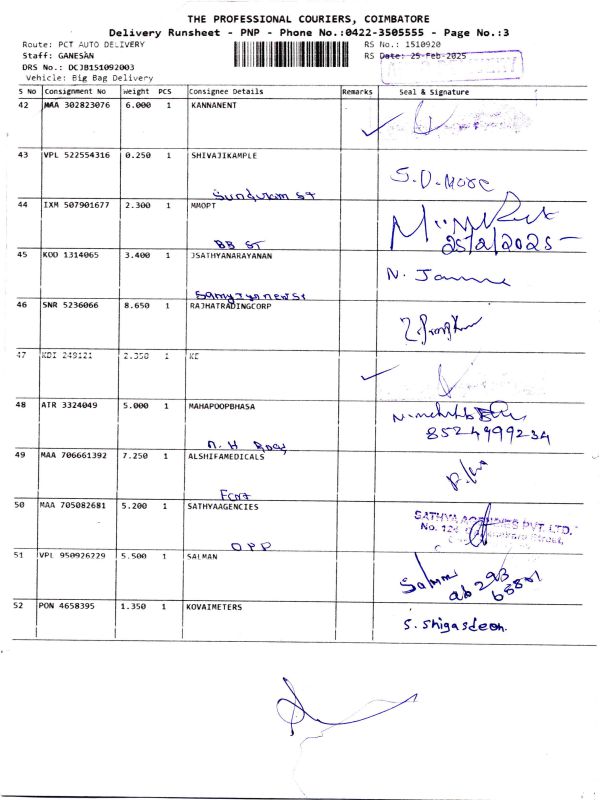 THE PROFESSIONAL COURIERS, COIMBATORE
Delivery Runsheet - PNP - Phone No.:0422-3505555 - Page No.:3
Route: PCT AUTO DELIVERY RS No.: 1510920
Staff: GANESAN RS Date: 25-Feb-2025
DRS No.: DCJB151092003
Vehicle: Big Bag Delivery
S No Consignment No Weight PCS Consignee Details Remarks Seal & Signature
42 MAA 302823076 6.000 1 KANNANENT
43 VPL 522554316 0.250 1 SHIVAJIKAMPLE
S.D.More
Sundaram St
44 IXM 507901677 2.300 1 MMOPT
25/2/2025
BB ST
45 KOD 1314065 3.400 1 JSATHYANARAYANAN
N.
46 SNR 5236066 8.650 1 RAJHATRADINGCORP
47 KDI 249121 2.350 1 KE
48 ATR 3324049 5.000 1 MAHAPOOPBHASA
8524999234
N. H Road
49 MAA 706661392 7.250 1 ALSHIFAMEDICALS
50 MAA 705082681 5.200 1 SATHYAAGENCIES
SATHYA AGENCIES PVT. LTD.
OPP
51 VPL 950926229 5.500 1 SALMAN
52 PON 4658395 1.350 1 KOVAIMETERS